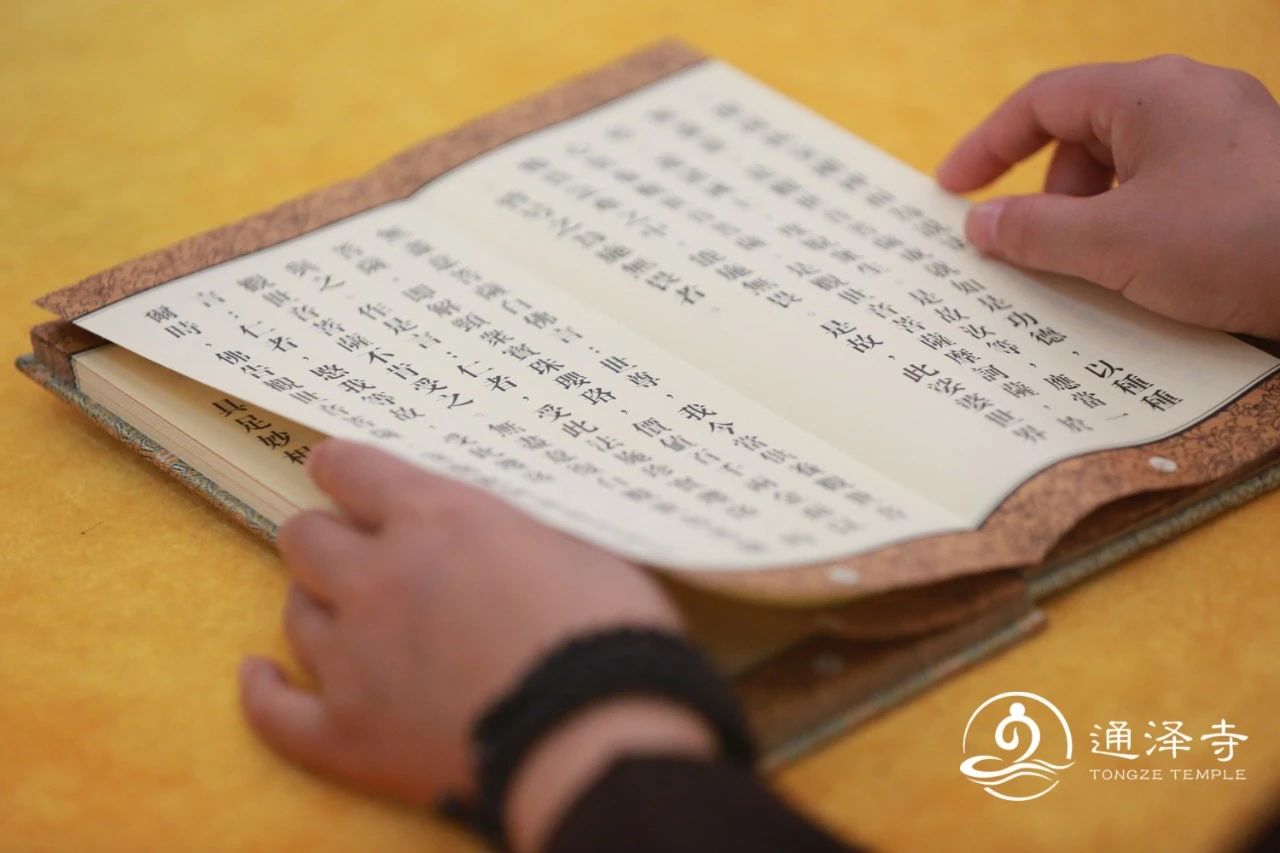 成就如是功德，以種種
度脫眾生。是故汝等，應當一
是觀世音菩薩摩訶薩，於
能施無畏。是故，此娑婆世界
皆號之為施無畏者
無盡意菩薩白佛言：世尊，我今當供養觀世音
菩薩。即解頸眾寶珠瓔珞，價值百千兩金而以
與之。作是言：仁者，受此法施珍寶瓔珞
觀世音菩薩不肯受之。無盡意復白觀
言：仁者，愍我等故，受此瓔珞
爾時，佛告觀世音菩薩
具足妙相
通泽寺
TONGZE TEMPLE